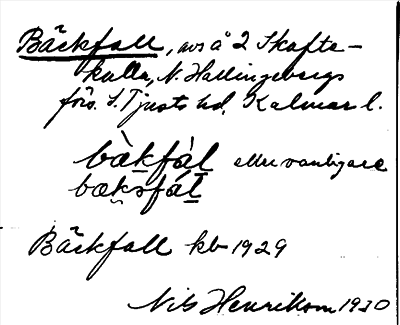 Bäckfall, avs å 2 Skafte-
kulla, N. Hallingebergs
förs. S. Tjusts hd, Kalmar l.
bàkfál eller vanligare
bæksfál
Bäckfall kb 1929
Nils Henrikson 1930